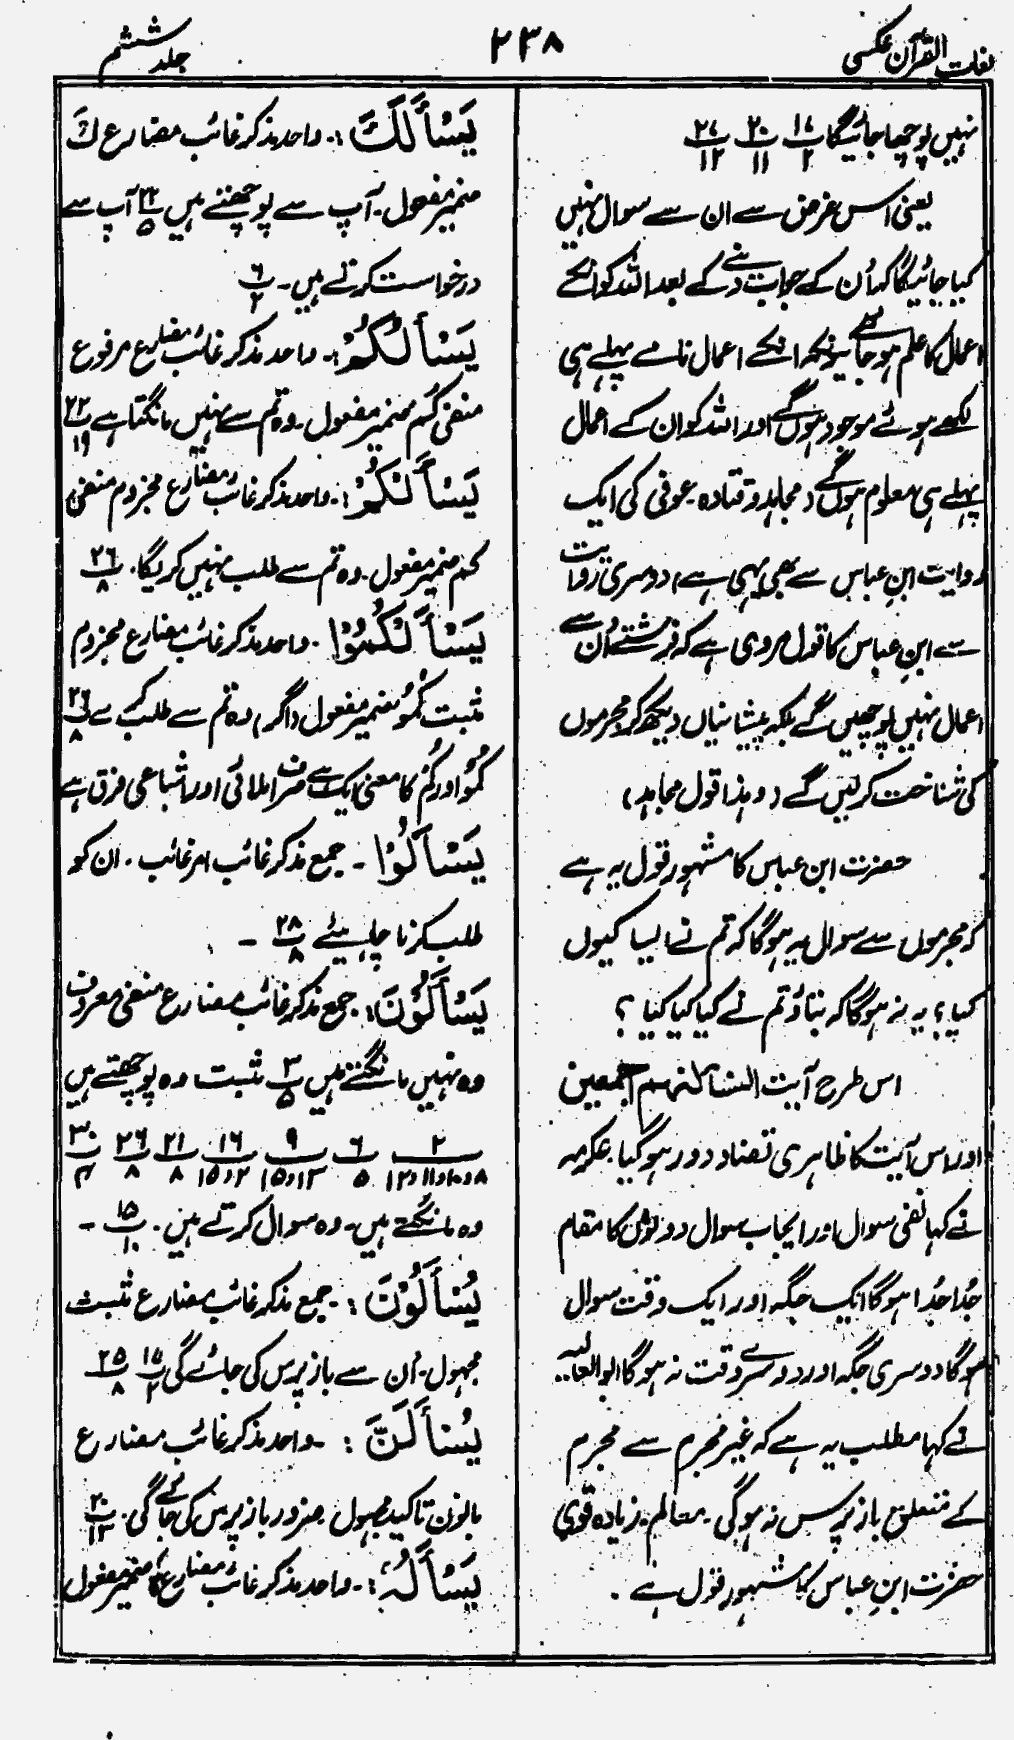 لغات القرآن عکسی
۲۳۸
جلد ششم
نہیں پوچھا جائیگا ۱۷/۲ ۲۰/۱۱ ۲۷/۱۲
یعنی اس غرض سے ان سے سوال نہیں
کیا جائیگا کہ اُن کے جواب دینے کے بعد اللہ کو انکے
اعمال کا علم ہو جائے کیونکہ انکے اعمال نامے پہلے ہی
لکھے ہوئے موجود ہوں گے اور اللہ کو ان کے اعمال
پہلے ہی معلوم ہوں گے (مجاہد و قتادہ ۔ عوفی کی ایک
روایت ابنِ عباس سے بھی یہی ہے) دوسری روایت
سے ابنِ عباس کا قول مروی ہے کہ فرشتے اُن سے
اعمال نہیں پوچھیں گے بلکہ پیشانیاں دیکھ کر مجرموں
کی شناخت کر لیں گے (وہذا قول مجاہد)
حضرت ابن عباس کا مشہور قول یہ ہے
کہ مجرموں سے سوال یہ ہوگا کہ تم نے ایسا کیوں
کیا؟ یہ نہ ہوگا کہ بتاؤ تم نے کیا کیا کیا ؟
اس طرح آیت لنسألنہم اجمعین
اور اس آیت کا ظاہری تضاد دور ہو گیا۔ عکرمہ
نے کہا نفی سوال اور ایجاب سوال دونوں کا مقام
جُدا جُدا ہوگا ایک جگہ اور ایک وقت سوال
ہوگا دوسری جگہ اور دوسرے وقت نہ ہوگا ابوالعالیہ
نے کہا مطلب یہ ہے کہ غیر مجرم سے مجرم
کے متعلق باز پرس نہ ہوگی ۔ معالم ۔ زیادہ قوی
حضرت ابنِ عباس کا مشہور قول ہے ۔
یَسْأَلُكَ :۔ واحد مذکر غائب مضارع كَ
ضمیر مفعول۔ آپ سے پوچھتے ہیں ۲۲/۵ آپ سے
درخواست کرتے ہیں ۔ ۶/۲
یَسْأَلُكُمْ :۔ واحد مذکر غائب مضارع مرفوع
منفی کُم ضمیر مفعول ۔ وہ تم سے نہیں مانگتا ہے ۲۲/۱۹
یَسْأَلْكُمْ :۔ واحد مذکر غائب مضارع مجزوم منفی
کم ضمیر مفعول ۔ وہ تم سے طلب نہیں کریگا ۔ ۲۶/۸
یَسْأَلْكُمُوْا ۔ واحد مذکر غائب مضارع مجزوم
مثبت کُمُو ضمیر مفعول (اگر) وہ تم سے طلب کرے ۲۶/۸
کُمُو اور کُمْ کا معنی ایک ہے صرف املائی اور اشباعی فرق ہے
یَسْأَلُوْا ۔ جمع مذکر غائب امر غائب ۔ ان کو
طلب کرنا چاہیئے ۲۸/۸ ۔
یَسْأَلُوْنَ: جمع مذکر غائب مضارع منفی معروف
وہ نہیں مانگتے ہیں ۳/۵ مثبت وہ پوچھتے ہیں
۲/۸و۱۰و۱۱و۱۲ ۶/۵ ۹/۱۳و۱۵ ۱۶/۲و۱۵ ۲۱/۸ ۲۶/۸ ۳۰/۴
وہ مانگتے ہیں ۔ وہ سوال کرتے ہیں ۔ ۱۵/۱۰ ۔
یُسْأَلُوْنَ : ۔ جمع مذکر غائب مضارع مثبت
مجہول ۔ اُن سے باز پرس کی جائے گی ۱۷/۲ ۲۵/۸
یُسْأَلَنَّ : ۔ واحد مذکر غائب مضارع
بانون تاکید مجہول ۔ ضرور باز پرس کی جائے گی ۔ ۲۰/۱۳
یَسْأَلُہٗ :۔ واحد مذکر غائب مضارع ہٗ ضمیر مفعول